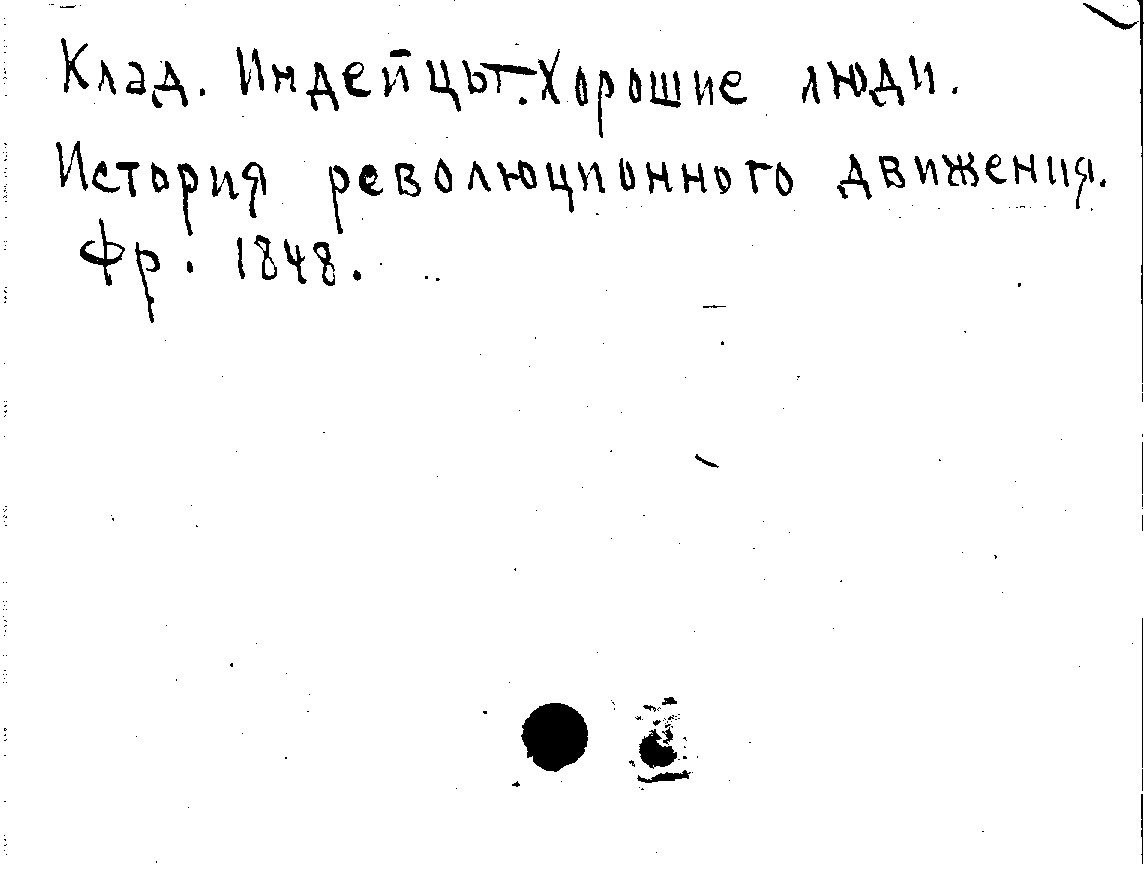 Клад. Индейцы.–Хорошие люди.
История революционного движения.
Фр. 1848.